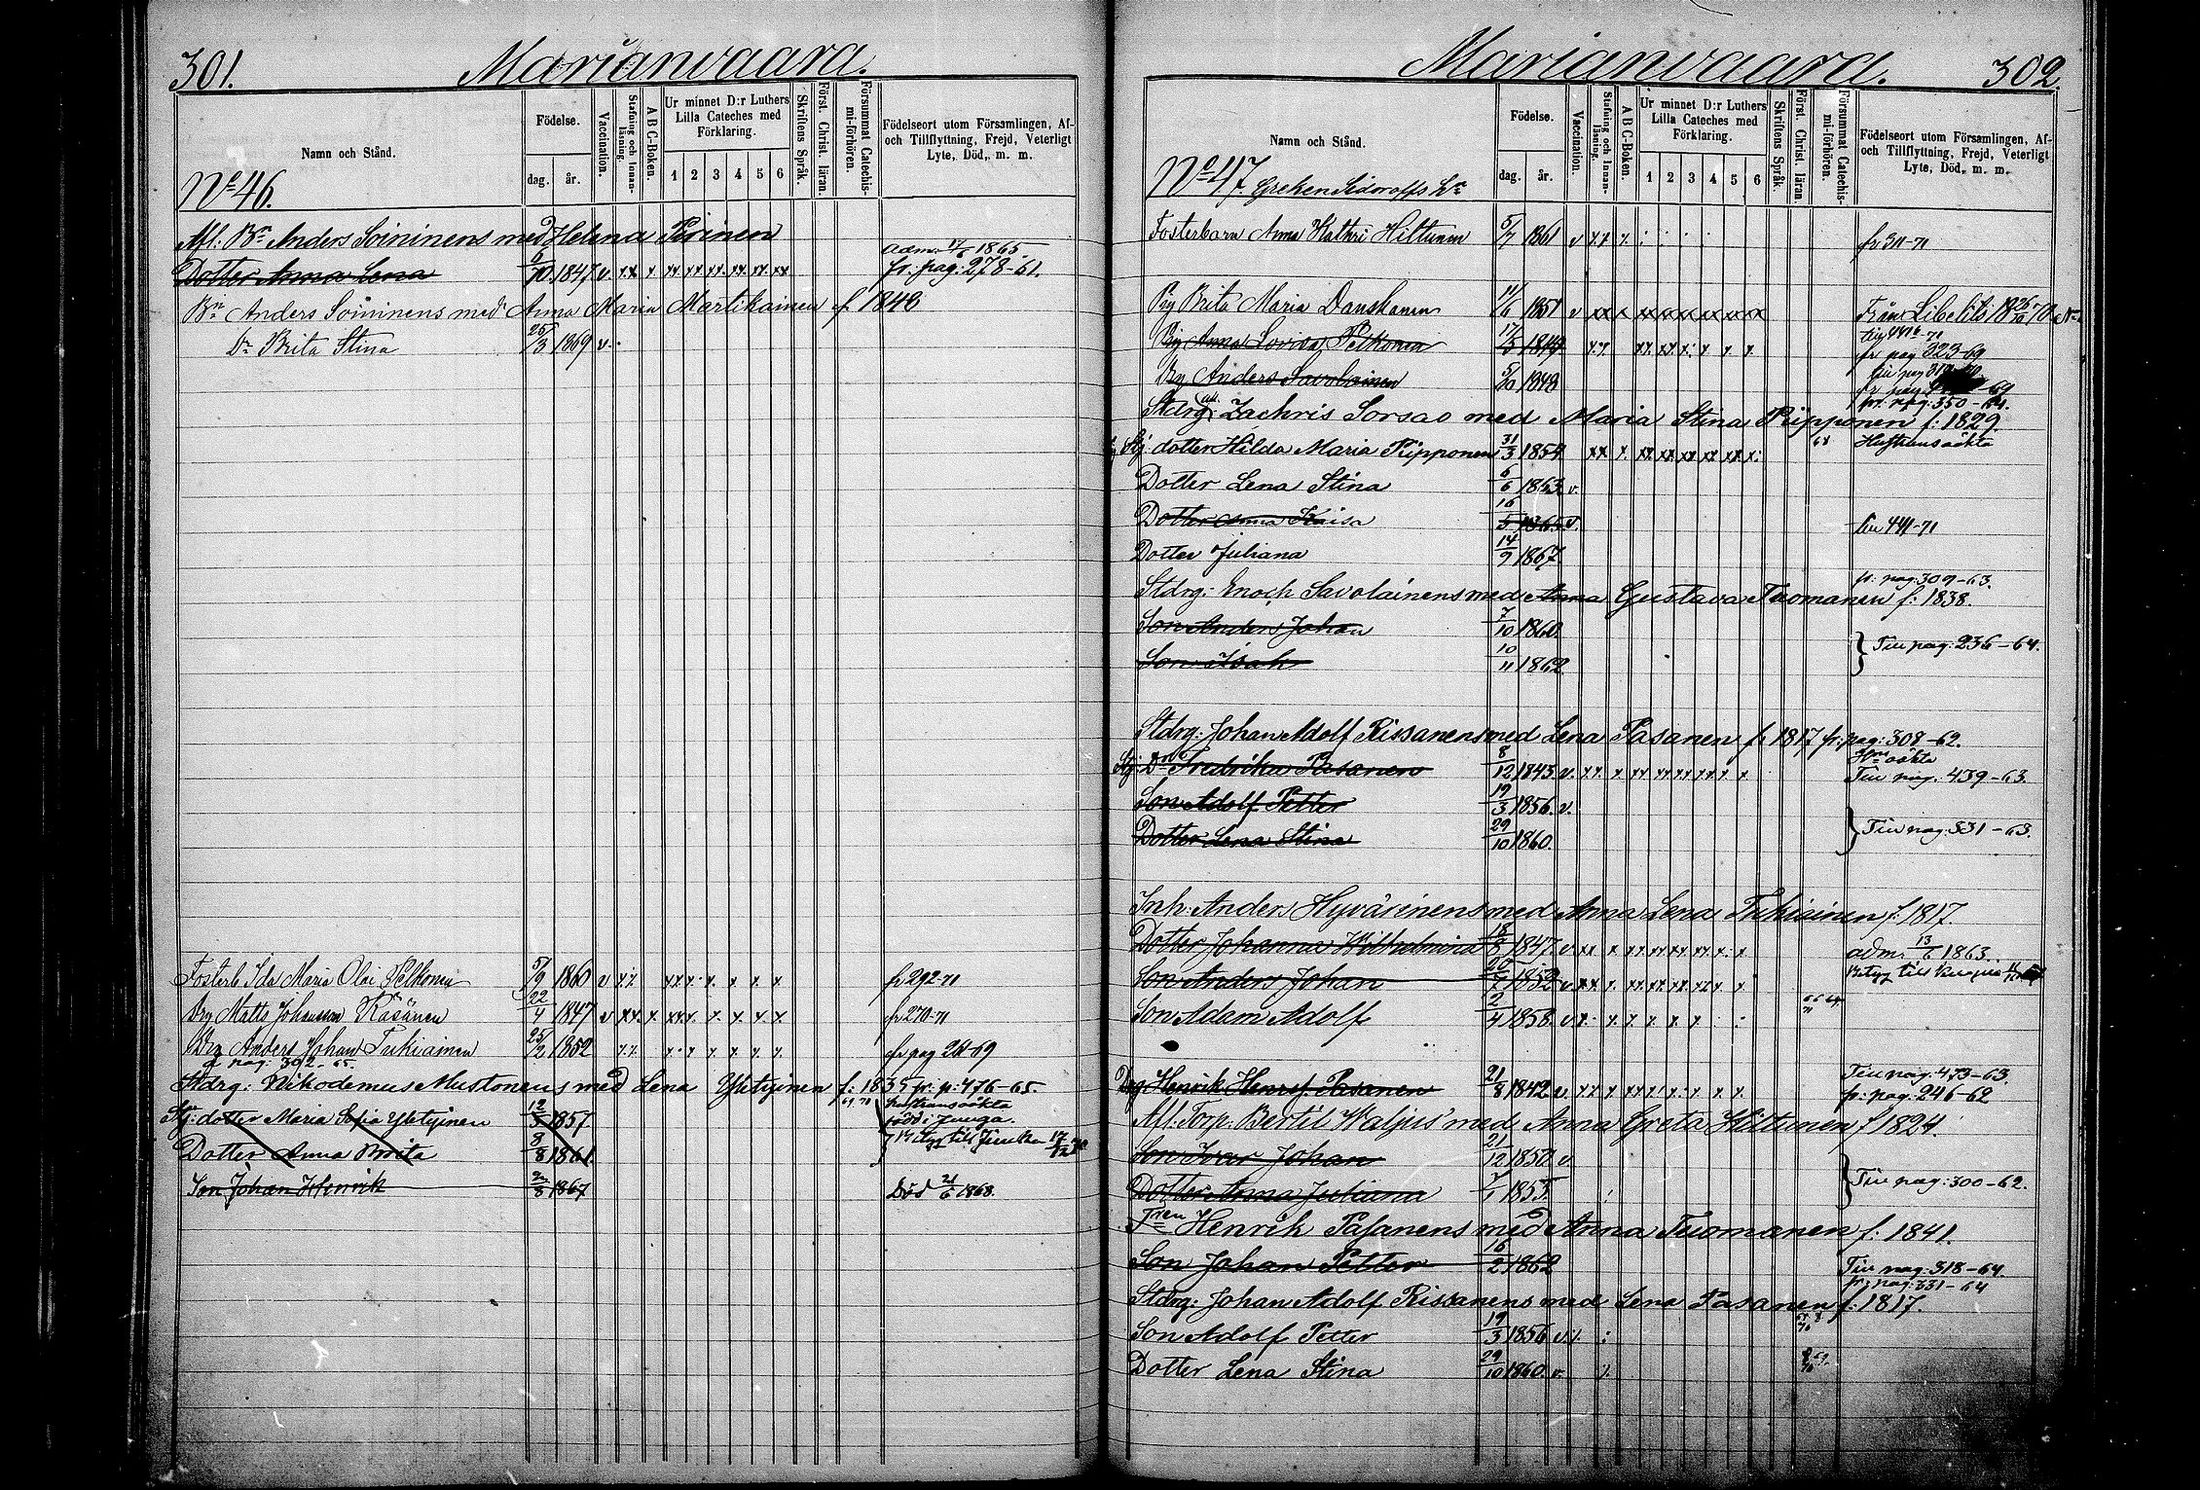 301. Marianvaara.
Namn och Stånd.
Födelse.
dag. år.
Vaccination.
Stafning och Innanläsning.
A B C-Boken.
Ur minnet D:r Luthers Lilla Cateches med Förklaring.
1 2 3 4 5 6
Skriftens Språk.
Först. Christ. läran.
Försummat Catechismi-förhören.
Födelseort utom Församlingen, Af- och Tillflyttning, Frejd, Veterligt Lyte, Död, m. m.
No 46.
Afl: Bn Anders Soininens med Helena Pirinen
Dotter Anna Lena 6/10 1847 v. xx x xx xx xx xx xx xx adm. 1865 fr. pag: 278-61.
Bn Anders Soininens med Anna Maria Martikainen f 1848
Dr Brita Stina 25/3 1869 v
Fosterb Ida Maria Olai Pelkonen 5/9 1860 v fr 292-71
Drg Matts Johansson Räsänen 22/4 1847 v fr 270-71
Drg Anders Johan Tukiainen 25/2 1852 fr pag 211-69
fr pag. 302-65.
Stdrg: Nikodemus Mustonens med Lena Yletyinen f: 1835 fr. p: 476-65.
Stj: dotter Maria Sofia Yletyinen 12/5 1857 hustruns oäkta född i Juuga.
Dotter Anna Brita 8/8 1861.
Son Johan Henrik 2/8 1867 Död 21/6 1868.
Marianvaara. 302.
Namn och Stånd.
Födelse.
dag. år.
Vaccination.
Stafning och Innanläsning.
A B C-Boken.
Ur minnet D:r Luthers Lilla Cateches med Förklaring.
1 2 3 4 5 6
Skriftens Språk.
Först. Christ. läran.
Försummat Catechismi-förhören.
Födelseort utom Församlingen, Af- och Tillflyttning, Frejd, Veterligt Lyte, Död, m. m.
No 47. Greken Sidoroffs
Fosterbarn Anna Kathri Hiltunen 5/7 1861 v fr 311-71
Pig Brita Maria Danskanen 11/6 1851 v Från Libelits
Pig Anna Lovisa Pelkonen 17/5 1849 fr pag 323-69
Drg Anders Savolainen 5/10 1848
fr. pag: 350-64.
Stdrg: Zachris Sorsas med Maria Stina Piipponen f: 1829.
Stj: dotter Hilda Maria Piipponen 31/3 1854 Hustruns oäkta
Dotter Lena Stina 6/6 1863 v.
Dotter Anna Kaisa 16/5 1865 v. till 441-71
Dotter Juliana 14/9 1867.
fr: pag: 309-63.
Stdrg: Enoch Savolainens med Anna Gustava Tuomanen f: 1838.
Son Anders Johan 7/10 1860.
Son Isak 10/11 1862. Till pag: 236-64.
Stdrg: Johan Adolf Rissanens med Lena Pasanen f: 1817 fr: pag: 308-62.
Stj: Dr Fredrika Pasanen 8/12 1843 v. Hns oäkta Till pag. 439-63.
Son Adolf Petter 19/3 1856. v.
Dotter Lena Stina 29/10 1860. Till pag: 331-63.
Inh: Anders Hyvärinens med Anna Lena Tukiainen f: 1817.
Dotter Johanna Wilhelmina 18/8 1847. v adm. 13/6 1863.
Son Anders Johan 1852 v. Betyg till Kuopio
Son Adam Adolf 2/4 1858. v
Till pag: 473-63.
Drg Henrik Henrsf. Pasanen 21/8 1842 v. fr: pag: 246-62
Afl: Torp: Bertil Waljus' med Anna Greta Hiltunen f 1824.
Son Ivar Johan 21/12 1850 v.
Dotter Anna Juliana 1855. Till pag: 300-62.
Tren Henrik Pasanens med Anna Tuomanen f: 1841.
Son Johan Petter 16/2 1862 Till pag: 318-64.
fr: pag: 331-64
Stdrg: Johan Adolf Rissanens med Lena Pasanen f: 1817.
Son Adolf Petter 19/3 1856 v.
Dotter Lena Stina 29/10 1860. v.